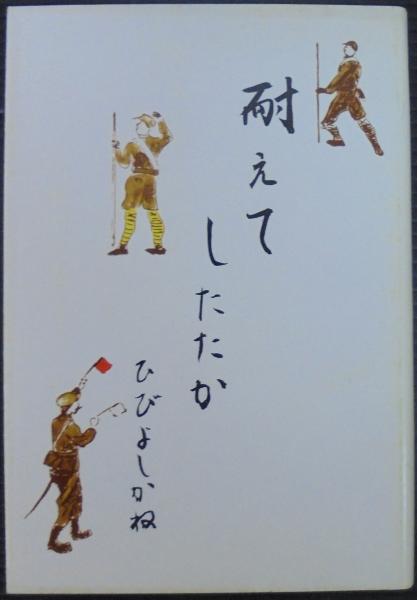 耐えて
したたか
ひびよしかね